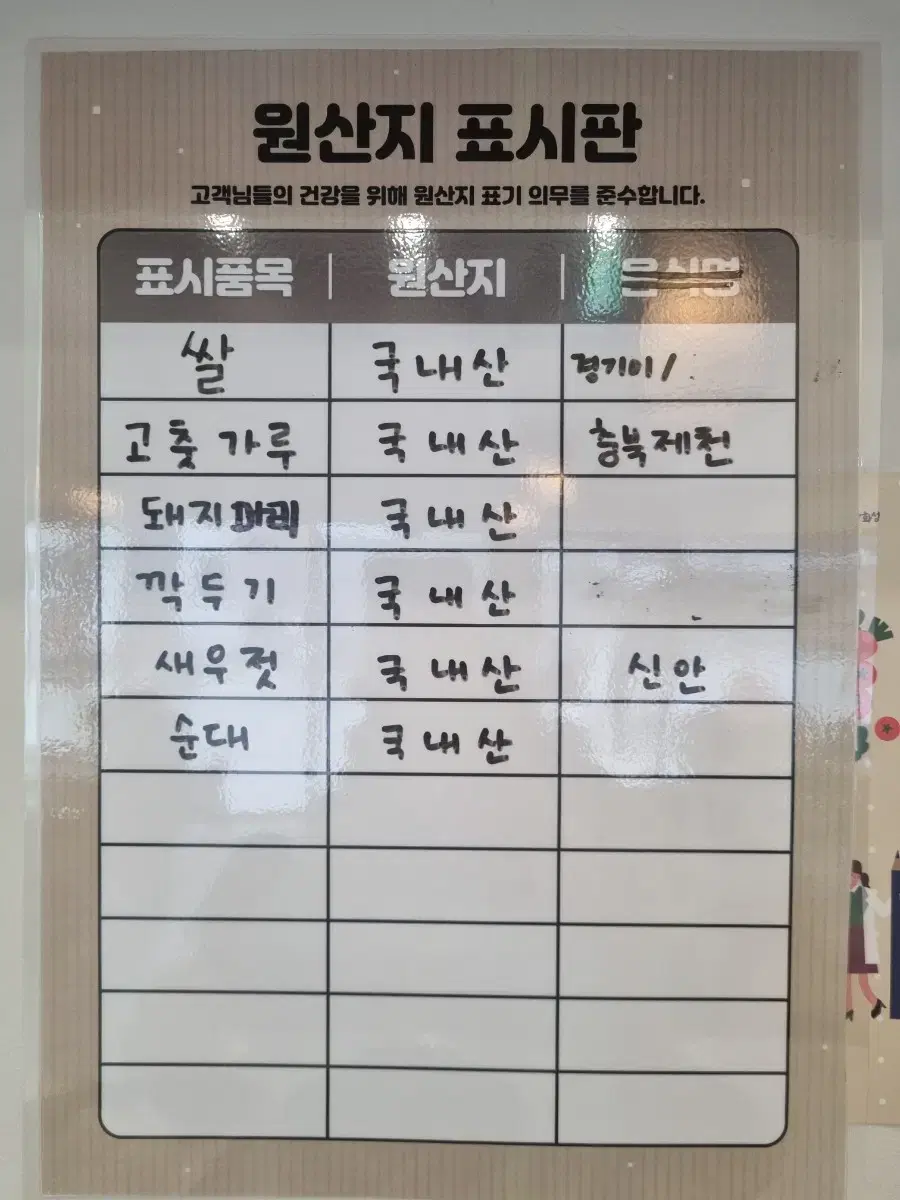 원산지 표시판
고객님들의 건강을 위해 원산지 표기 의무를 준수합니다.
표시품목 | 원산지 | 음식명
쌀 국내산 경기이
고춧가루 국내산 충북제천
돼지머리 국내산
깍두기 국내산
새우젓 국내산 신안
순대 국내산